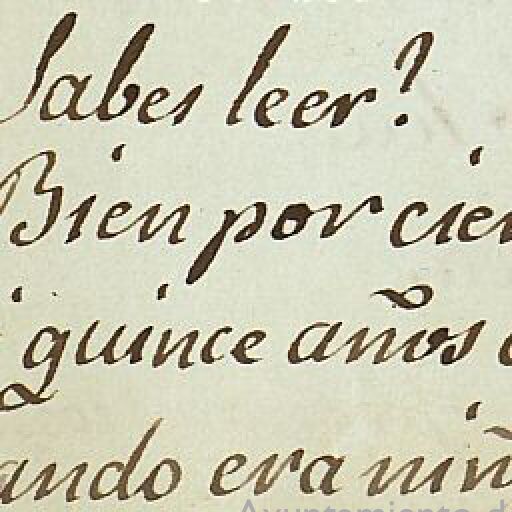 Sabes leer?
Bien por cier
quince años
ando era niñ
Ayuntamiento d